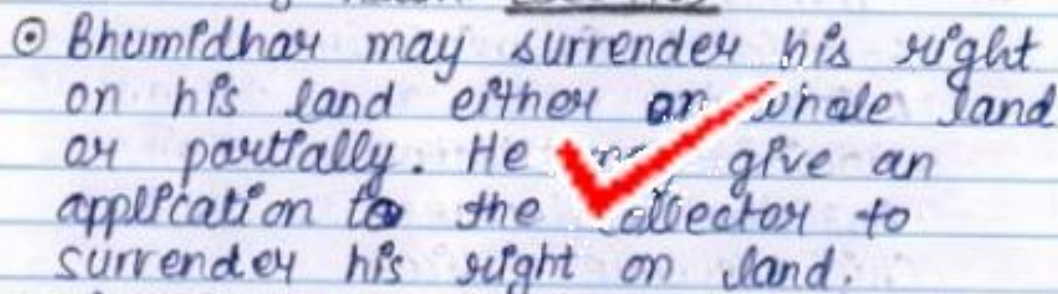 Bhumidhar may surrender his right
on his land either on whole land
or partially. He may give an
application to the collector to
surrender his right on land.